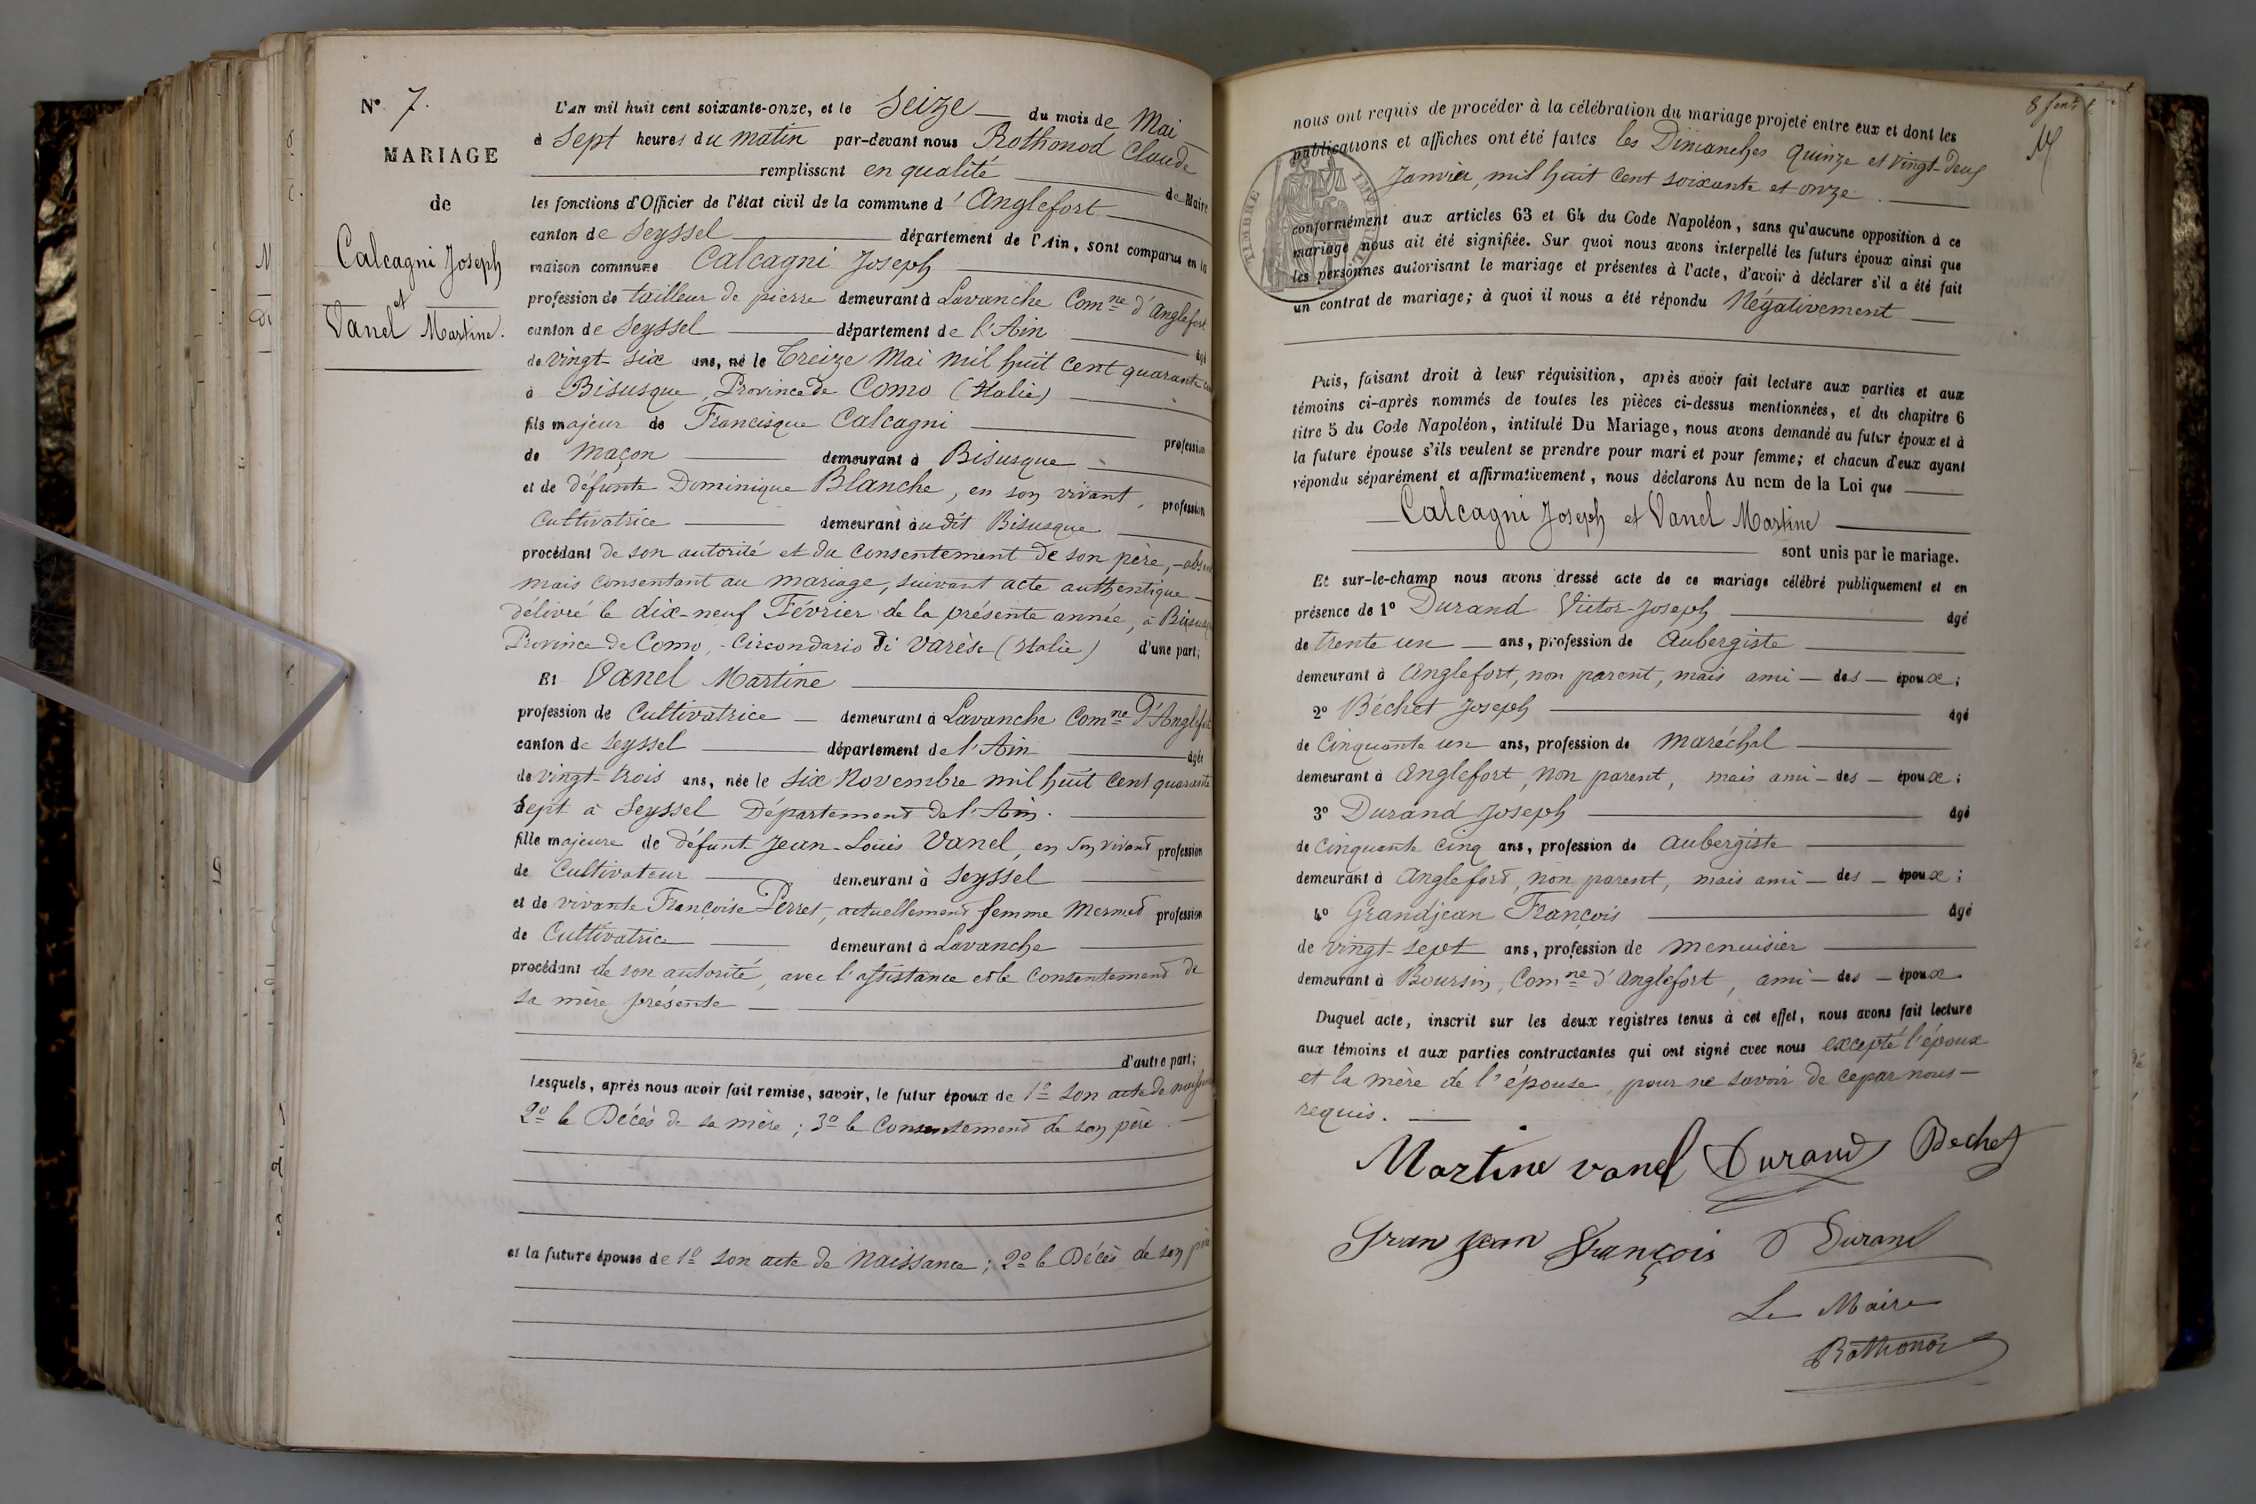 N° 7.
MARIAGE
de
Calcagni Joseph
et
Vanel Martine.
L'an mil huit cent soixante-onze, et le Seize du mois de Mai
à Sept heures du matin par-devant nous Rothonod Claude
remplissant en qualité de Maire
les fonctions d'Officier de l'état civil de la commune d'Anglefort
canton de Seyssel département de l'Ain, sont comparus en la
maison commune Calcagni Joseph
profession de tailleur de pierre demeurant à Lavanche Comne d'Anglefort
canton de Seyssel département de l'Ain âgé
de vingt-six ans, né le Treize Mai mil huit cent quarante
à Bisusque, Province de Como (Italie)
fils majeur de Francisque Calcagni profession
de Maçon demeurant à Bisusque
et de défunte Dominique Blanche, en son vivant, profession
Cultivatrice demeurant audit Bisusque
procédant de son autorité et du consentement de son père, -absent
mais consentant au mariage, suivant acte authentique
délivré le dix-neuf Février de la présente année, à Bisusque
Province de Como, - Circondario di Varèse (Italie) d'une part;
Et Vanel Martine
profession de Cultivatrice demeurant à Lavanche Comne d'Anglefort
canton de Seyssel département de l'Ain âgée
de vingt-trois ans, née le Six Novembre mil huit cent quarante
Sept à Seyssel Département de l'Ain.
fille majeure de défunt Jean-Louis Vanel, en son vivant profession
de Cultivateur demeurant à Seyssel
et de vivante Françoise Perret, actuellement femme Mermet profession
de Cultivatrice demeurant à Lavanche
procédant de son autorité, avec l'assistance et le consentement de
sa mère présente
d'autre part;
Lesquels, après nous avoir fait remise, savoir, le futur époux de 1° son acte de naissance
2° le Décès de sa mère; 3° le Consentement de son père.
et la future épouse de 1° son acte de Naissance; 2° le Décès de son père
8 fent
nous ont requis de procéder à la célébration du mariage projeté entre eux et dont les
publications et affiches ont été faites les Dimanches quinze et vingt-deux
Janvier, mil huit cent soixante et onze.
TIMBRE IMPÉRIAL
conformément aux articles 63 et 64 du Code Napoléon, sans qu'aucune opposition à ce
mariage nous ait été signifiée. Sur quoi nous avons interpellé les futurs époux ainsi que
les personnes autorisant le mariage et présentes à l'acte, d'avoir à déclarer s'il a été fait
un contrat de mariage; à quoi il nous a été répondu Négativement
Puis, faisant droit à leur réquisition, après avoir fait lecture aux parties et aux
témoins ci-après nommés de toutes les pièces ci-dessus mentionnées, et du chapitre 6
titre 5 du Code Napoléon, intitulé Du Mariage, nous avons demandé au futur époux et à
la future épouse s'ils veulent se prendre pour mari et pour femme; et chacun d'eux ayant
répondu séparément et affirmativement, nous déclarons Au nom de la Loi que
Calcagni Joseph et Vanel Martine
sont unis par le mariage.
Et sur-le-champ nous avons dressé acte de ce mariage célébré publiquement et en
présence de 1° Durand Victor-Joseph âgé
de trente un ans, profession de Aubergiste
demeurant à Anglefort, non parent, mais ami - des - époux;
2° Béchet Joseph âgé
de Cinquante un ans, profession de Maréchal
demeurant à Anglefort, non parent, mais ami - des - époux;
3° Durand Joseph âgé
de Cinquante cinq ans, profession de Aubergiste
demeurant à Anglefort, non parent, mais ami - des - époux;
4° Grandjean François âgé
de vingt-sept ans, profession de menuisier
demeurant à Boursin, Comne d'Anglefort, ami - des - époux
Duquel acte, inscrit sur les deux registres tenus à cet effet, nous avons fait lecture
aux témoins et aux parties contractantes qui ont signé avec nous excepté l'époux
et la mère de l'épouse, pour ne savoir de ce par nous
requis.
Martine vanel Durand Bechet
Gran Jean François Durand
Le Maire
Rothonod